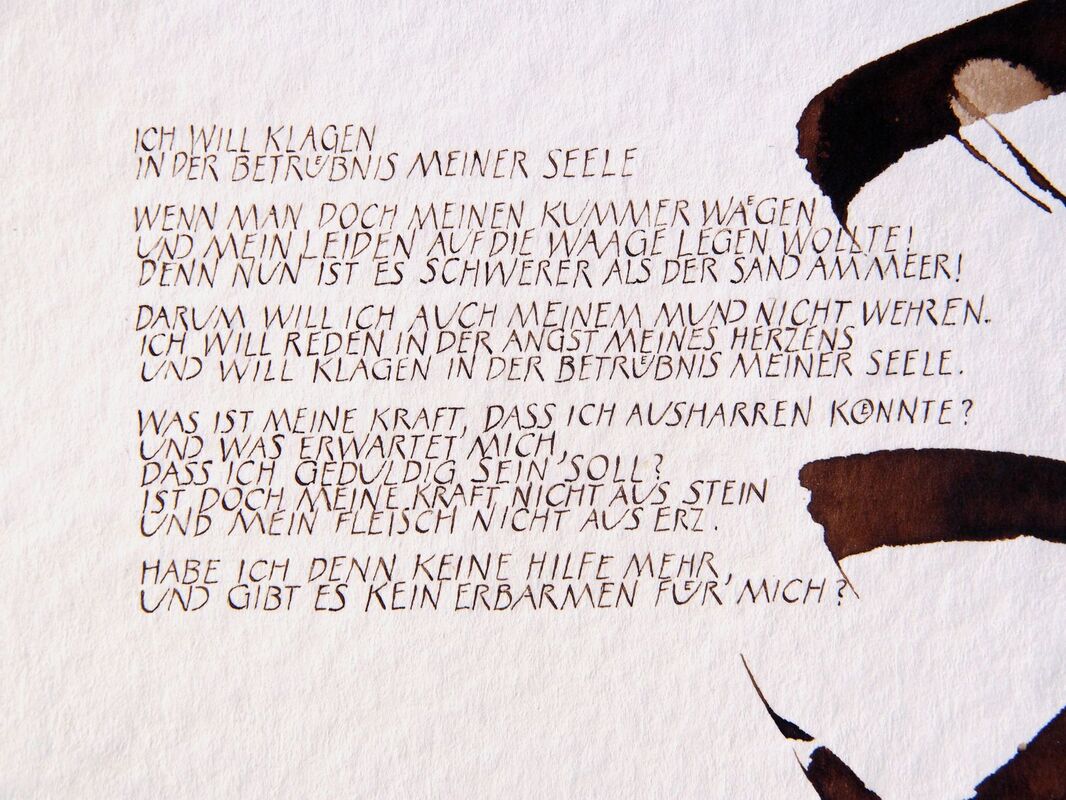 ICH WILL KLAGEN
IN DER BETRÜBNIS MEINER SEELE
WENN MAN DOCH MEINEN KUMMER WÄGEN
UND MEIN LEIDEN AUF DIE WAAGE LEGEN WOLLTE!
DENN NUN IST ES SCHWERER ALS DER SAND AM MEER!
DARUM WILL ICH AUCH MEINEM MUND NICHT WEHREN.
ICH WILL REDEN IN DER ANGST MEINES HERZENS
UND WILL KLAGEN IN DER BETRÜBNIS MEINER SEELE.
WAS IST MEINE KRAFT, DASS ICH AUSHARREN KÖNNTE?
UND WAS ERWARTET MICH,
DASS ICH GEDULDIG SEIN SOLL?
IST DOCH MEINE KRAFT NICHT AUS STEIN
UND MEIN FLEISCH NICHT AUS ERZ.
HABE ICH DENN KEINE HILFE MEHR,
UND GIBT ES KEIN ERBARMEN FÜR MICH?